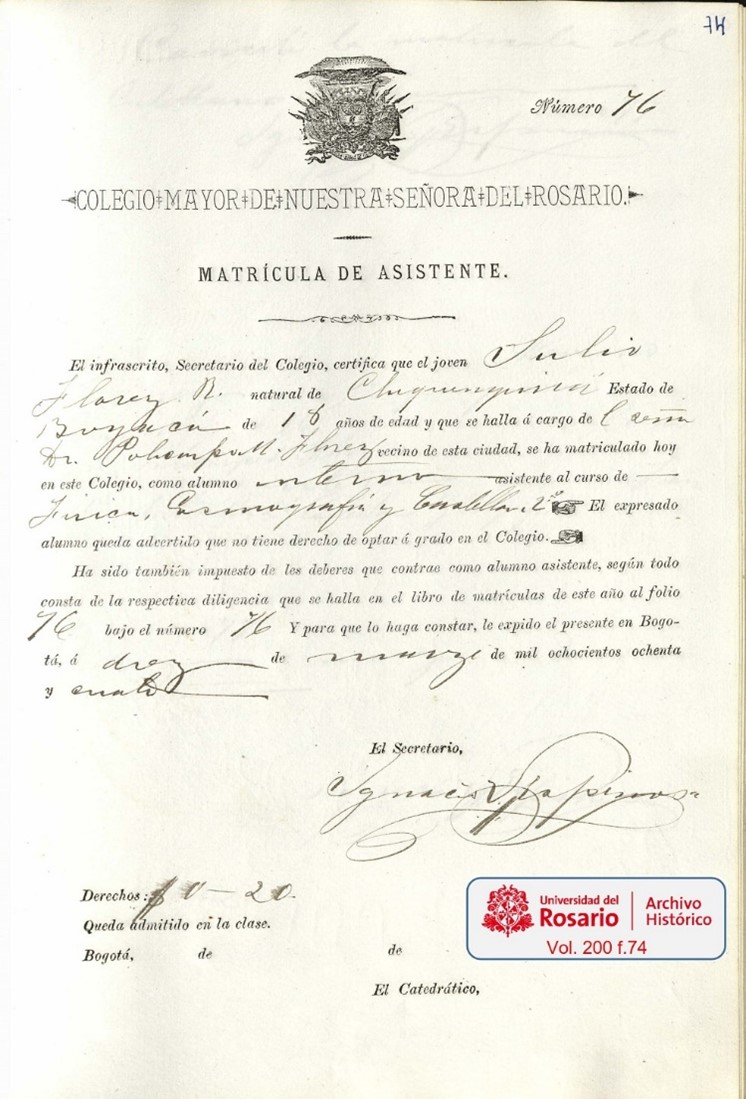 74
Número 76
COLEGIO MAYOR DE NUESTRA SEÑORA DEL ROSARIO.
MATRÍCULA DE ASISTENTE.
El infrascrito, Secretario del Colegio, certifica que el joven Julio
Florez R. natural de Chiquinquirá Estado de
Boyacá de 18 años de edad y que se halla á cargo de l señor
Dr. Policarpo M. Florez vecino de esta ciudad, se ha matriculado hoy
en este Colegio, como alumno interno asistente al curso de
Física, Cosmografía y Castellano 2º El expresado
alumno queda advertido que no tiene derecho de optar á grado en el Colegio.
Ha sido también impuesto de les deberes que contrae como alumno asistente, según todo
consta de la respectiva diligencia que se halla en el libro de matrículas de este año al folio
76 bajo el número 76 Y para que lo haga constar, le expido el presente en Bogo-
tá, á diez de marzo de mil ochocientos ochenta
y cuatro
El Secretario,
Ignacio Espinosa
Derechos: $ 0-20.
Queda admitido en la clase.
Bogotá, de de
El Catedrático,
Universidad del Rosario
Archivo Histórico
Vol. 200 f.74